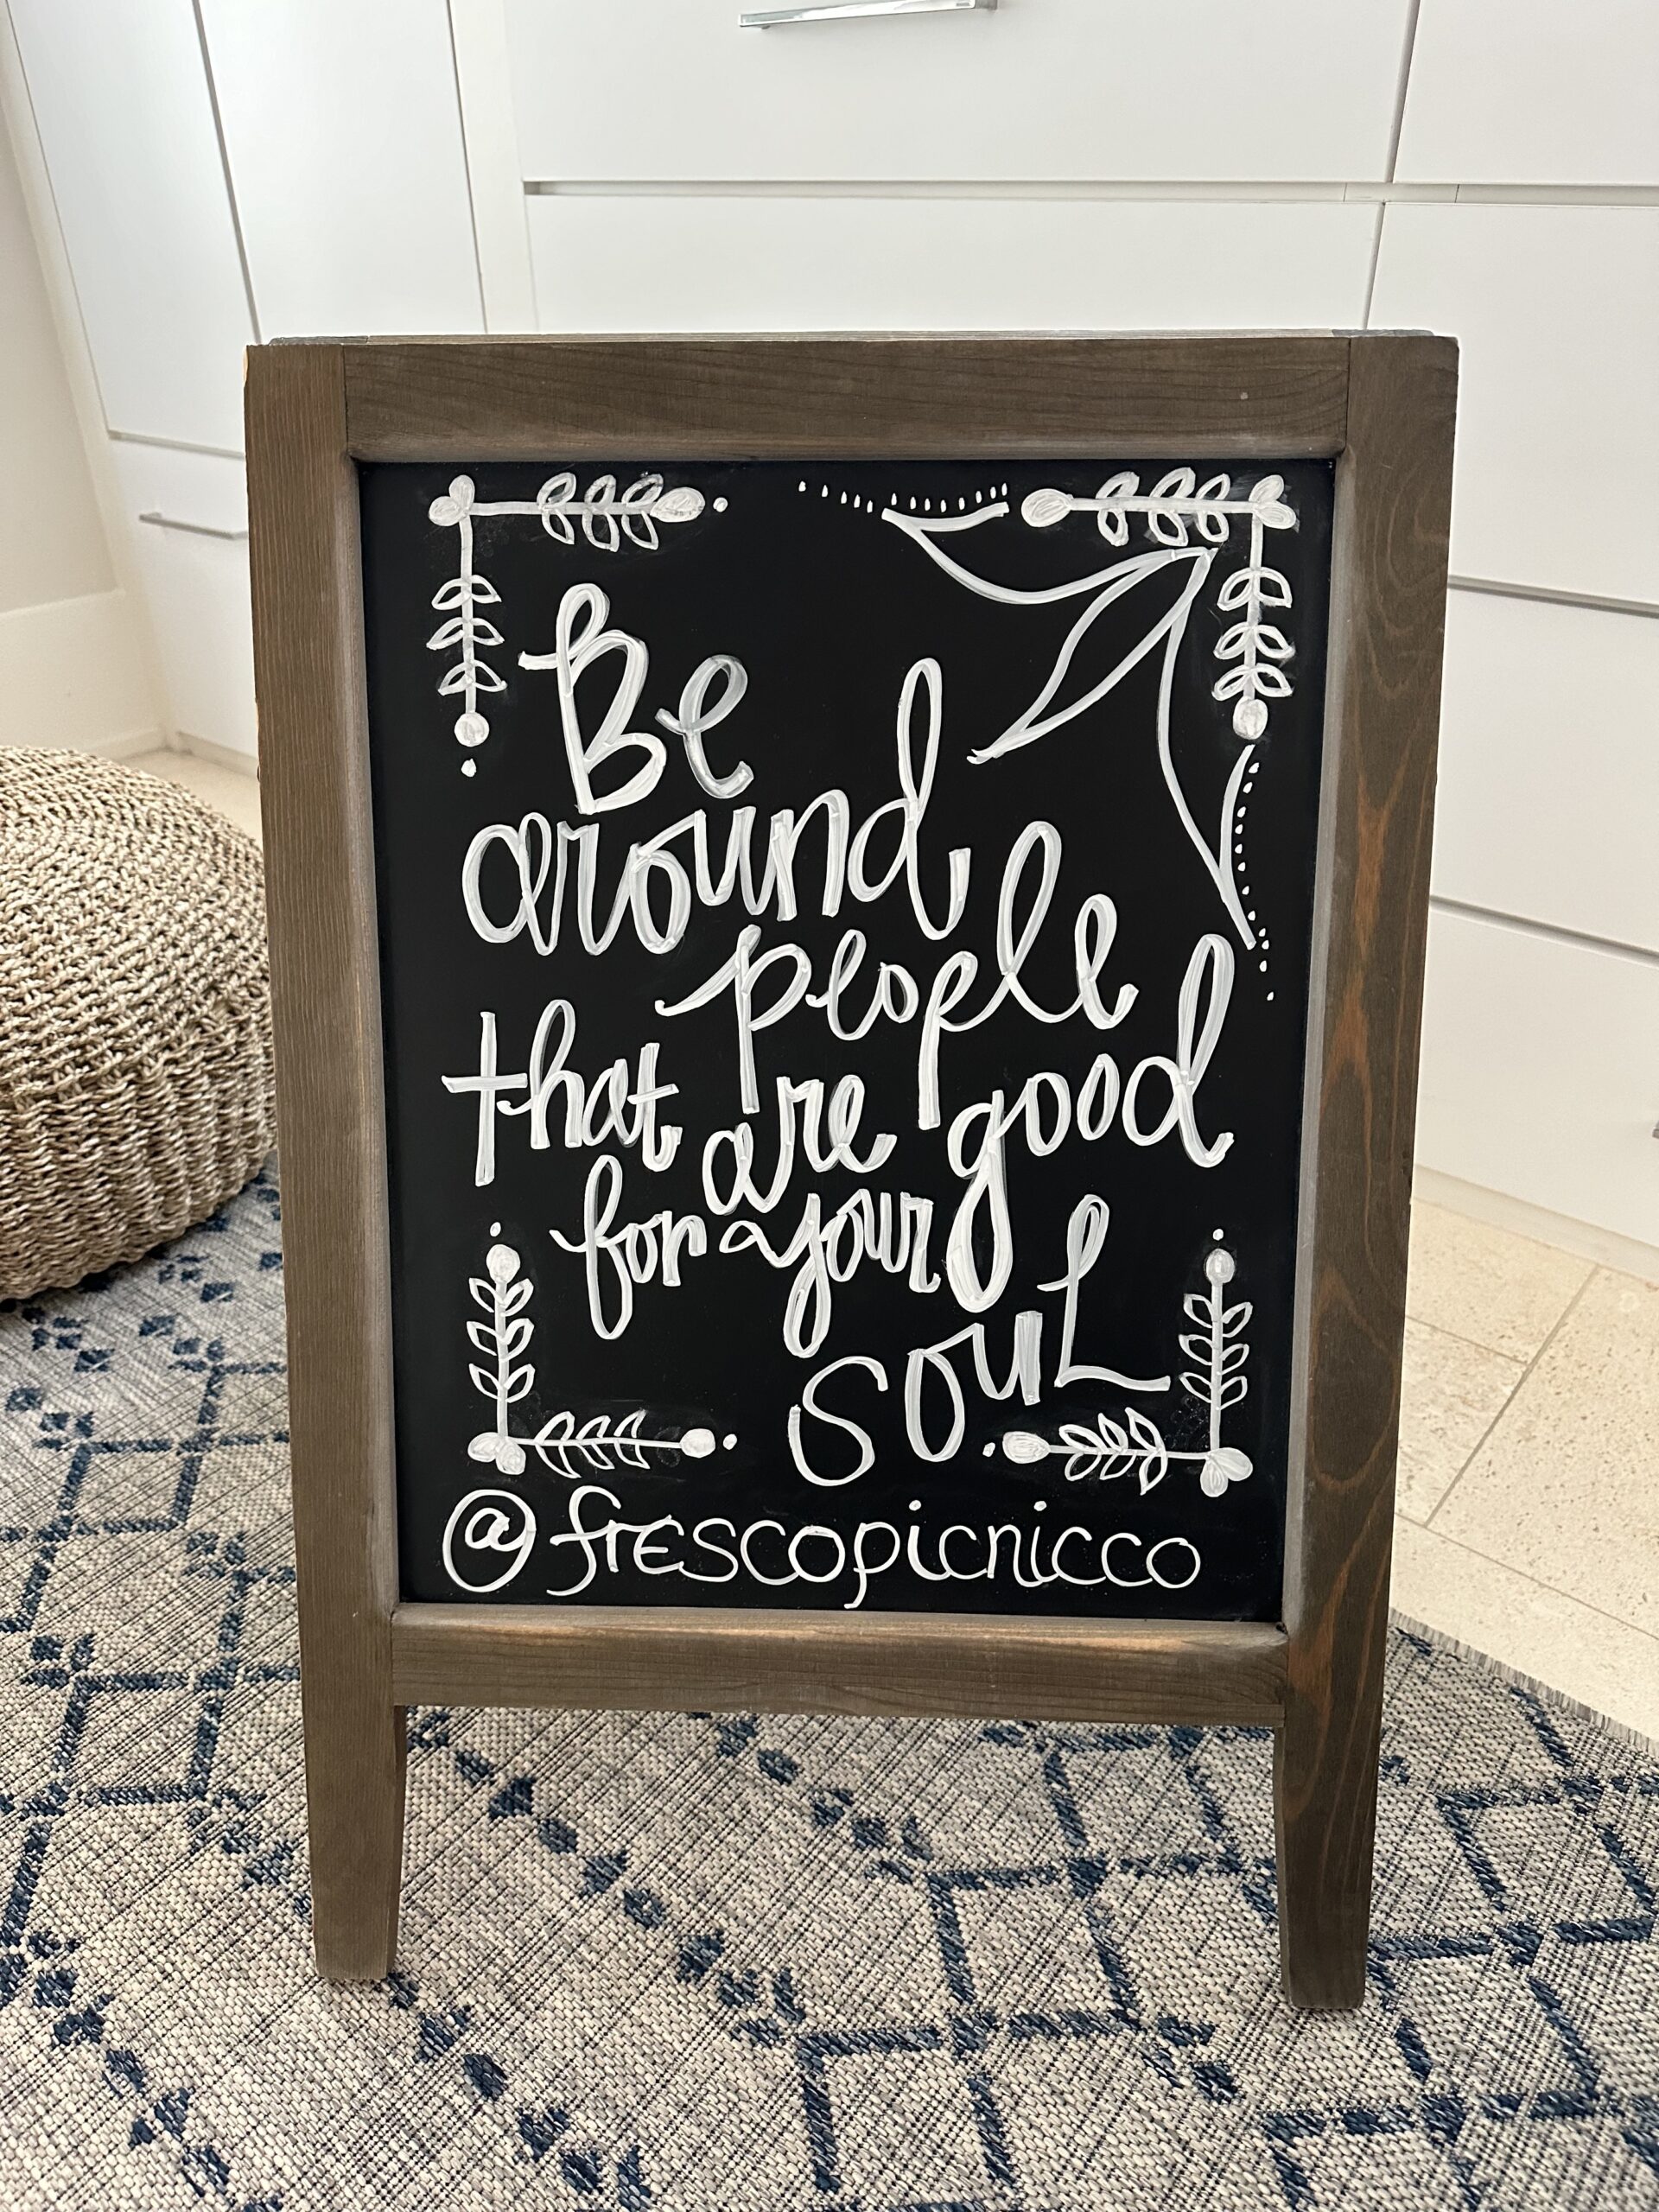 Be
around
people
that are good
for your
soul
@frescopicnicco